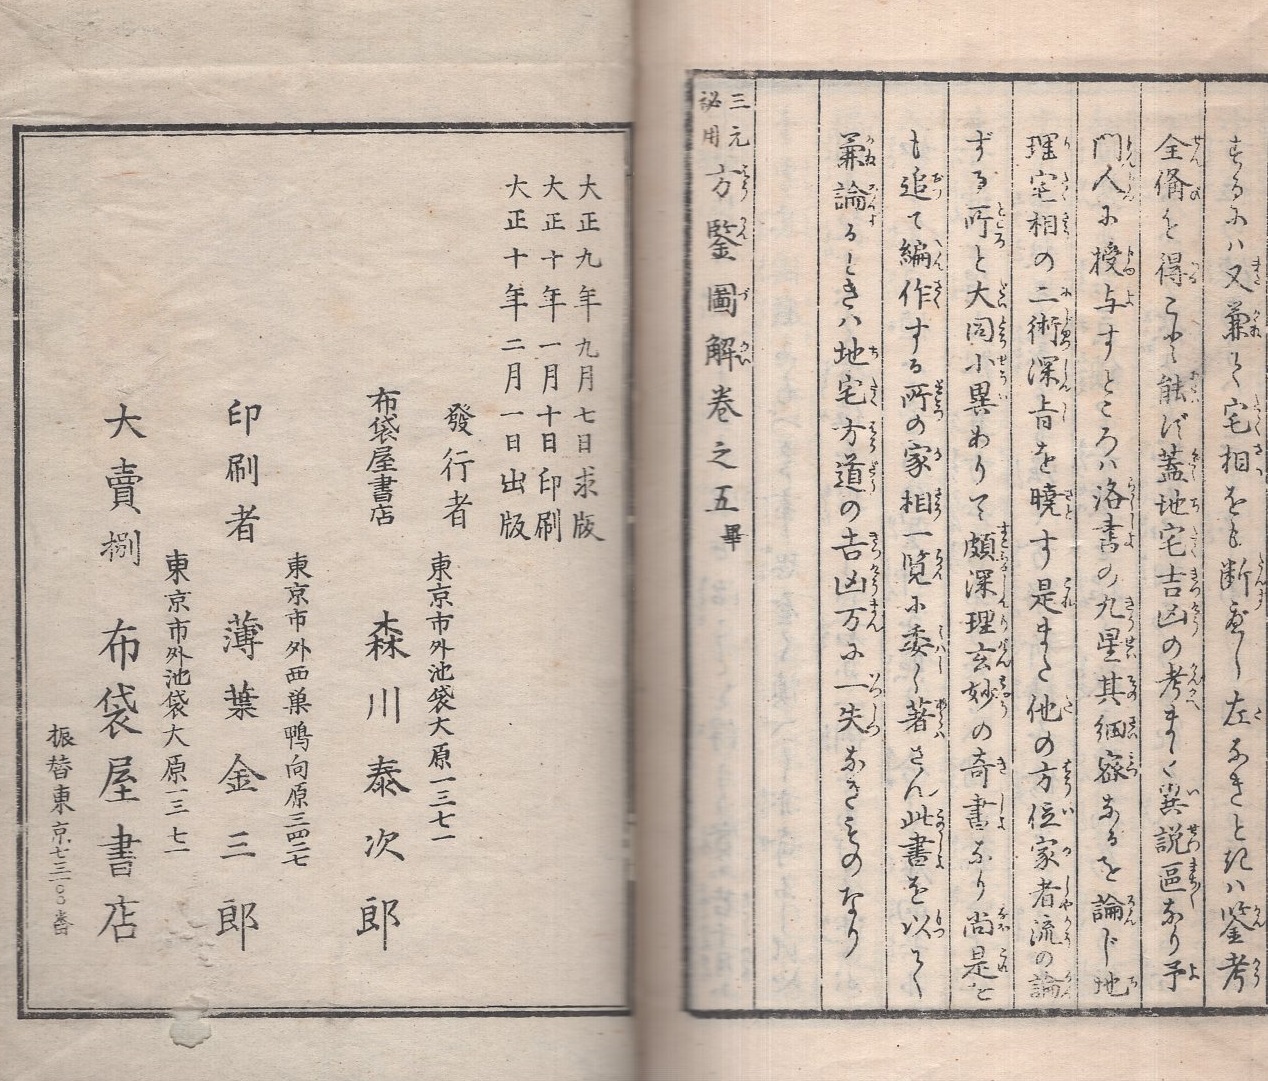 するには又兼て宅相をも断ずべし左なきときは鑒考
全備を得ること能はず蓋地宅吉凶の考まゝ異説區なり予
門人に授与すところは洛書の九星其細密なるを論じ地
理宅相の二術深旨を曉す是また他の方位家者流の論
ずる所と大同小異ありて頗深理玄妙の奇書なり尚是を
も追て編作する所の家相一覧に委しく著さん此書を以て
兼論るときは地宅方道の吉凶万に一失なきものなり
三元秘用方鑒圖解卷之五畢
大正九年九月七日求版
大正十年一月十日印刷
大正十年二月一日出版
發行者
東京市外池袋大原一三七一
布袋屋書店 森川泰次郎
東京市外西巣鴨向原三四二七
印刷者 薄葉金三郎
東京市外池袋大原一三七一
大賣捌 布袋屋書店
振替東京七三一〇〇番